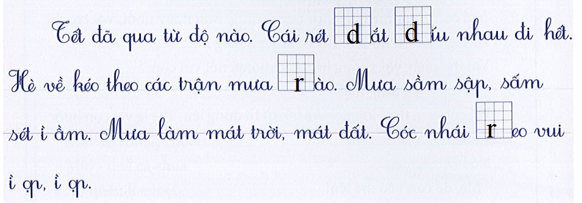 Tết đã qua từ độ nào. Cái rét dắt díu nhau đi hết.
Hè về kéo theo các trận mưa rào. Mưa sầm sập, sấm
sét ì ầm. Mưa làm mát trời, mát đất. Cóc nhái reo vui
ì ọp, ì ọp.